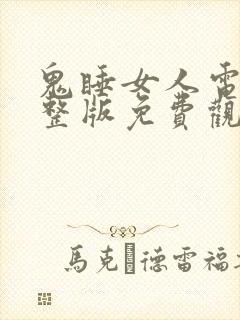 鬼睡女人電
整版免費觀
馬克 德雷福